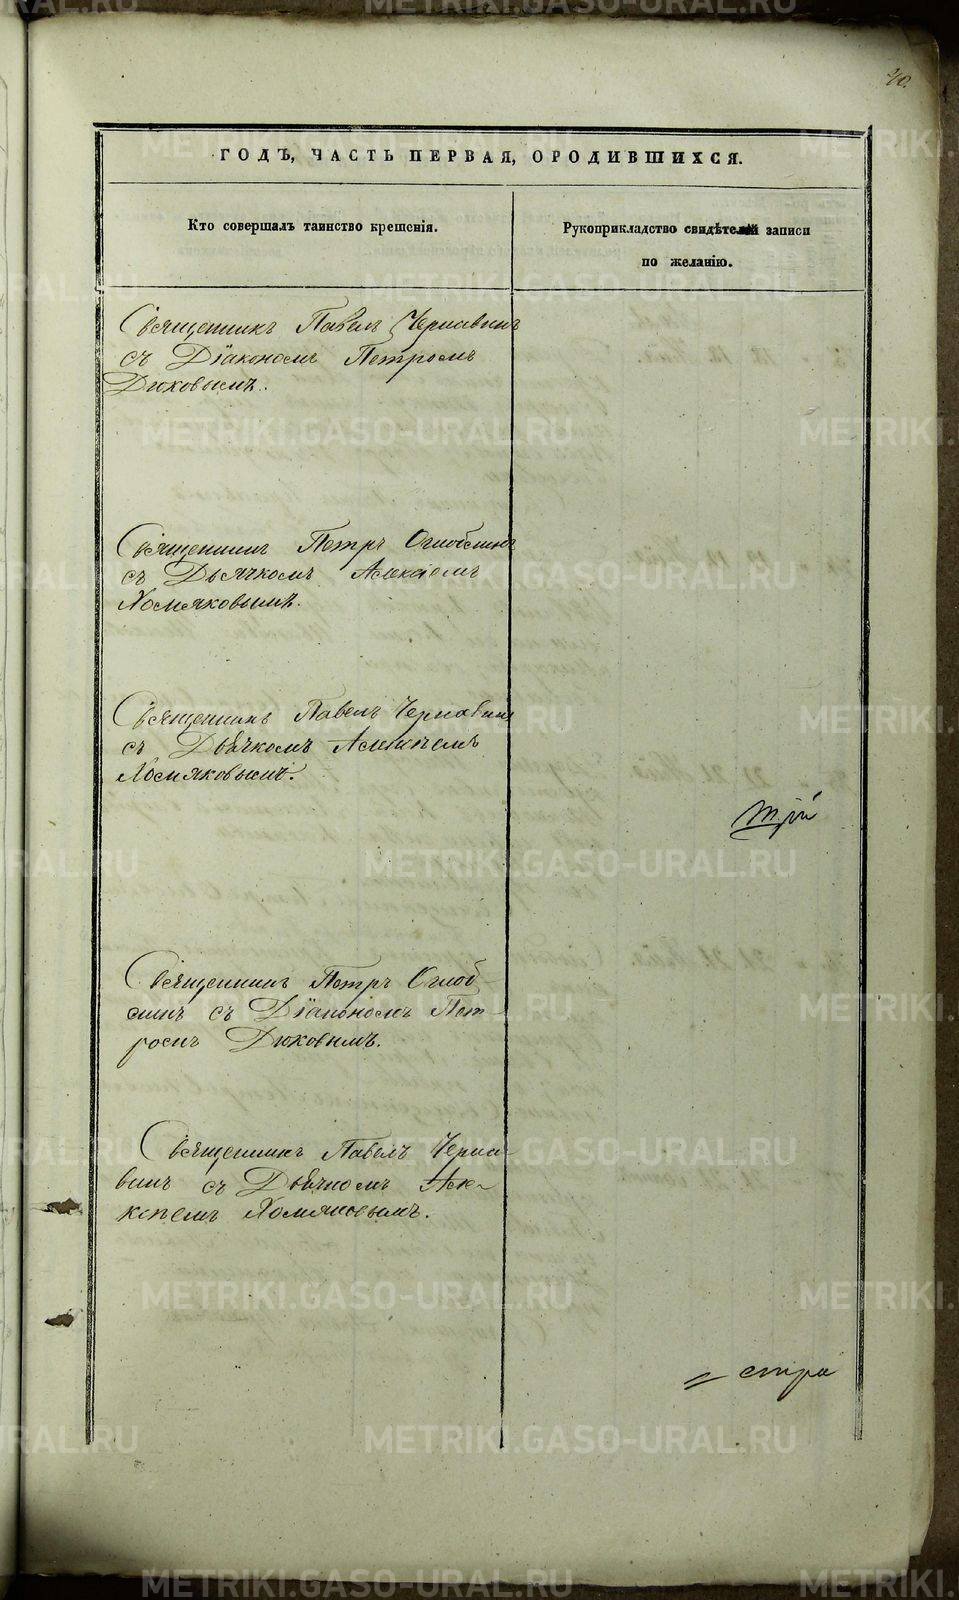 40.
ГОДЪ, ЧАСТЬ ПЕРВАЯ, О РОДИВШИХСЯ.
Кто совершалъ таинство крещенія.
Рукоприкладство свидѣтелей записи
по желанію.
Священникъ Павелъ Чернавинъ
съ Діакономъ Петромъ
Дюковымъ.
Священникъ Петръ Оглоблинъ
съ Дьячкомъ Алексіемъ
Хомяковымъ.
Священникъ Павелъ Чернавинъ
съ Дьячкомъ Алексіемъ
Хомяковымъ.
Священникъ Петръ Оглоб-
линъ съ Діакономъ Пет-
ромъ Дюковымъ.
Священникъ Павелъ Черна-
винъ съ Дьячкомъ Але-
ксіемъ Хомяковымъ.
METRIKI.GASO-URAL.RU